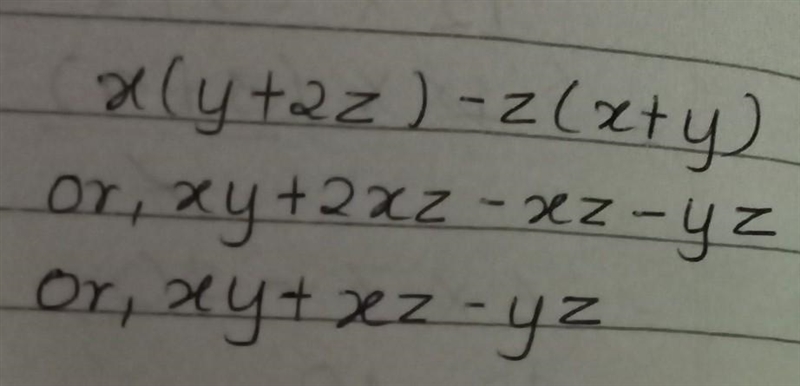 x(y+2z)-z(x+y)
or, xy+2xz-xz-yz
or, xy+xz-yz